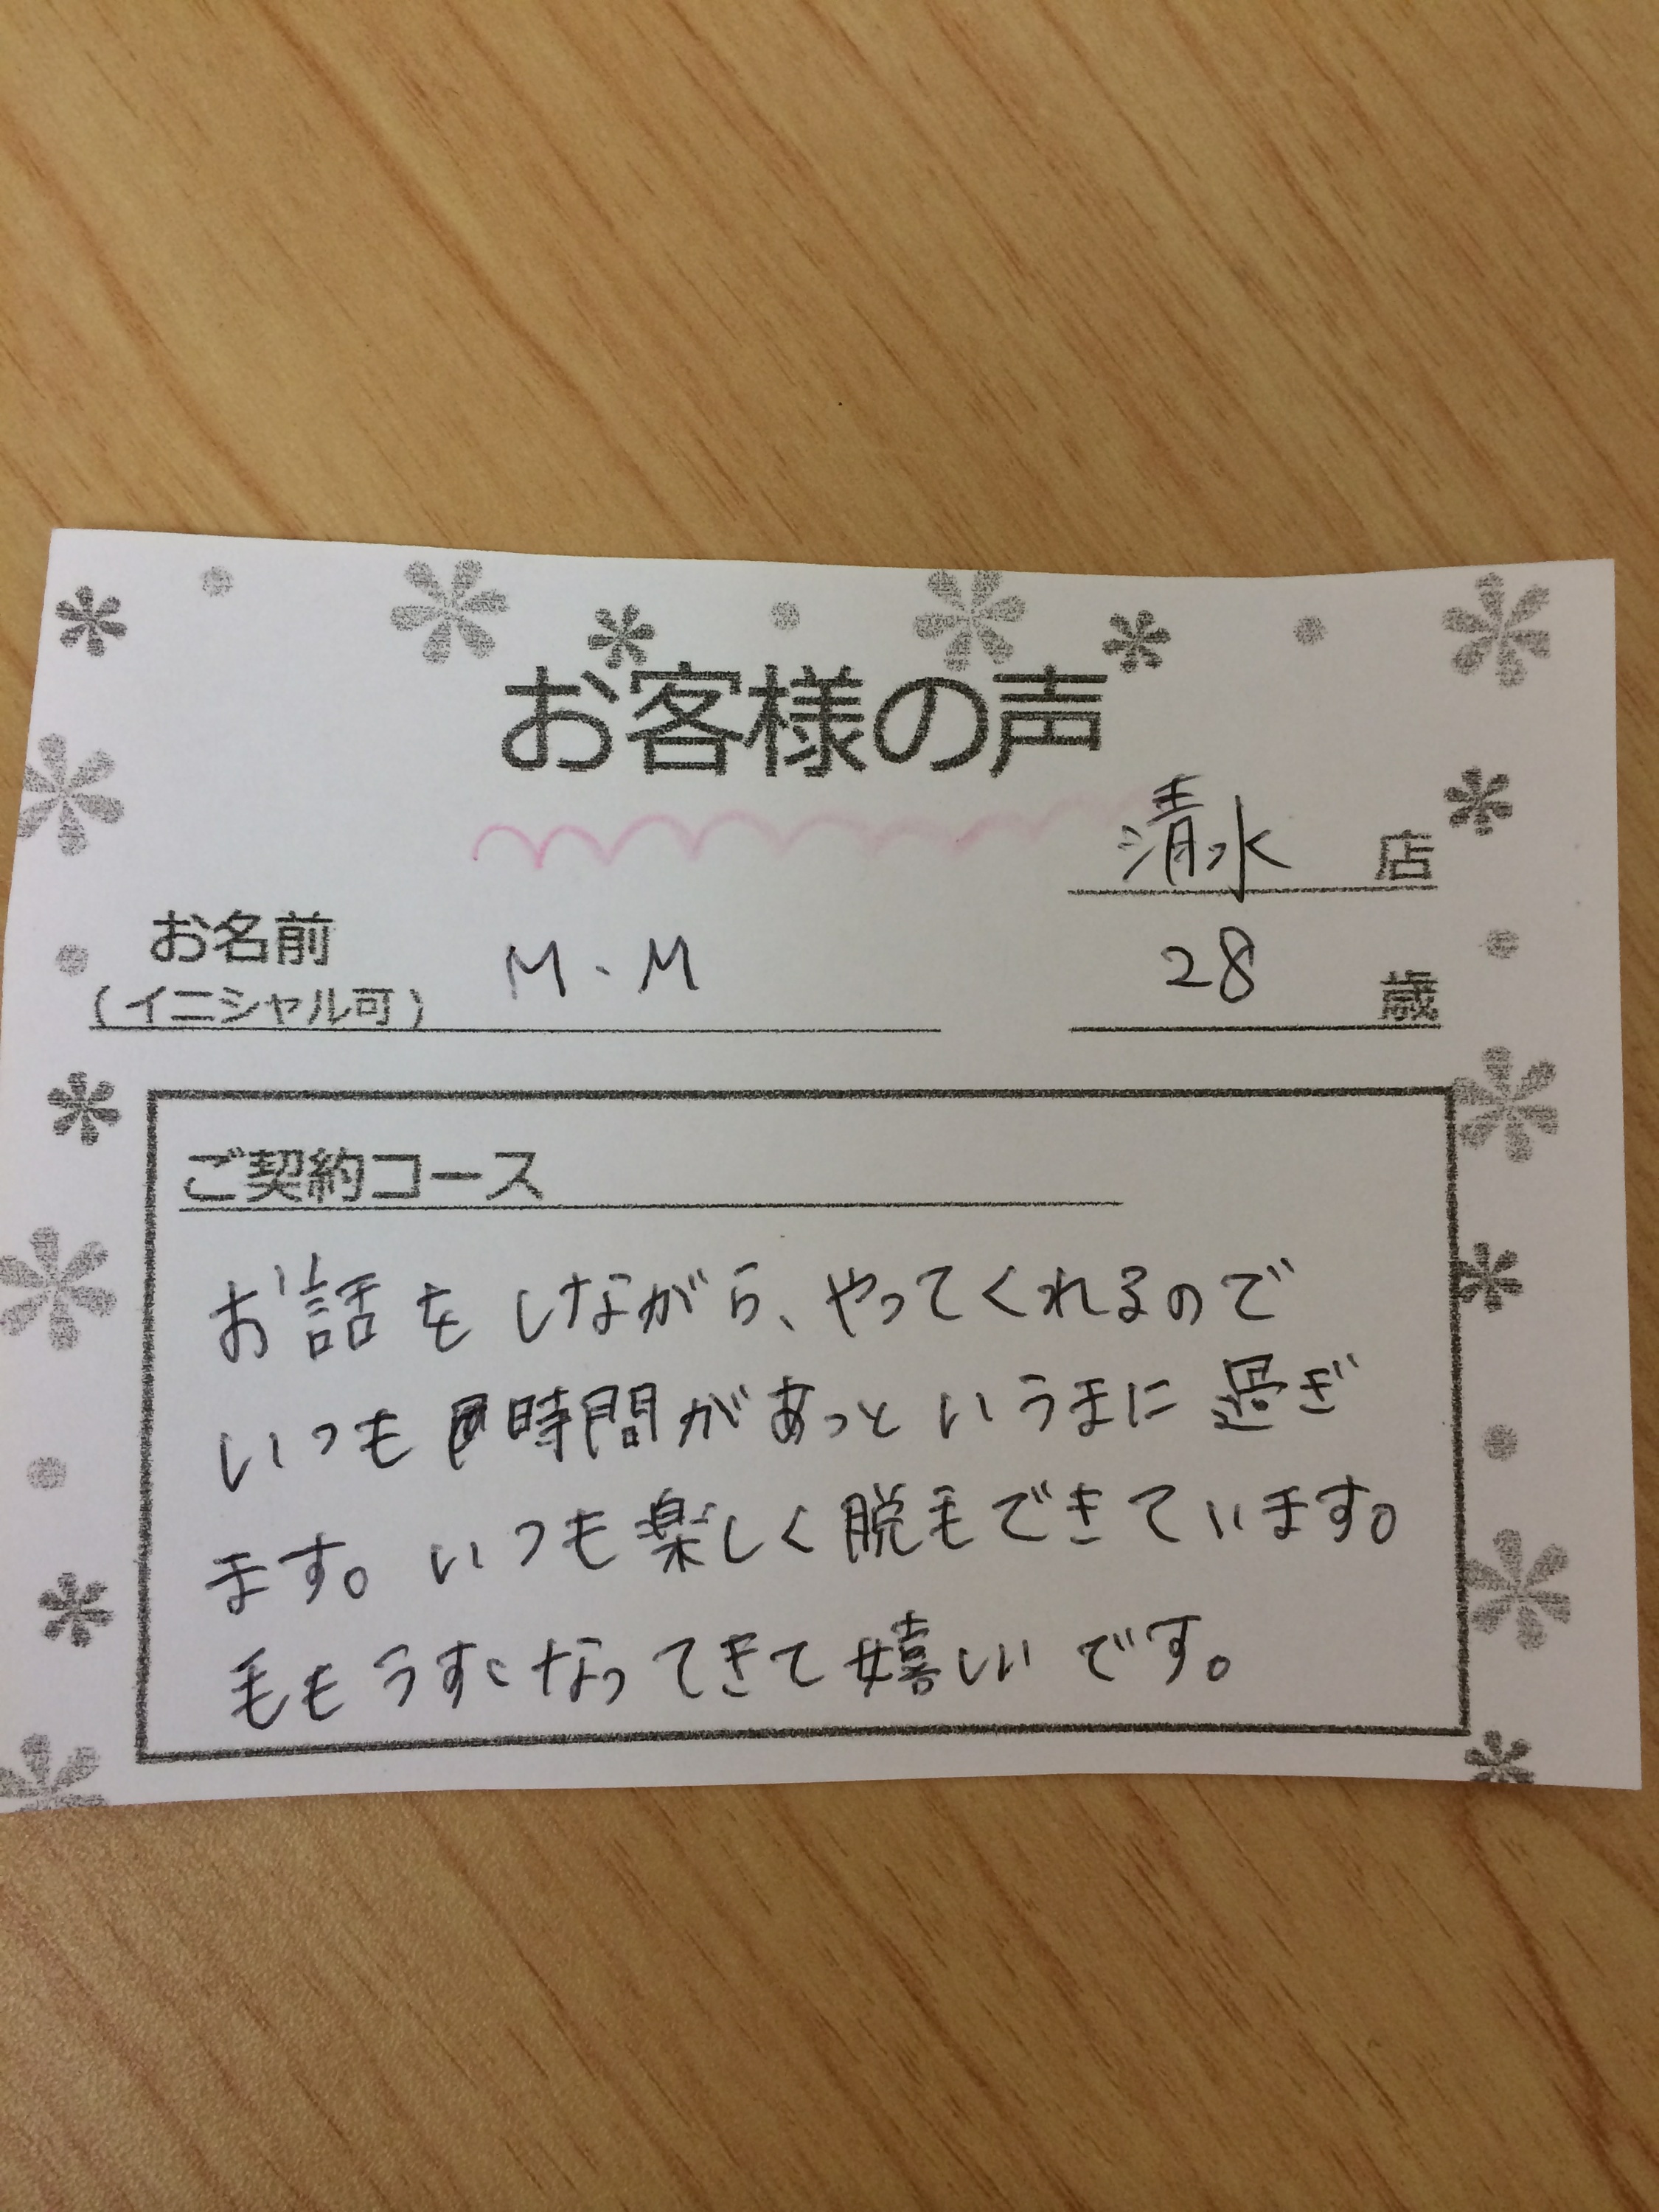 お客様の声
清水 店
お名前 M.M 28 歳
(イニシャル可)
ご契約コース
お話をしながら、やってくれるので
いつも時間があっというまに過ぎ
ます。いつも楽しく脱毛できています。
毛もうすくなってきて嬉しいです。